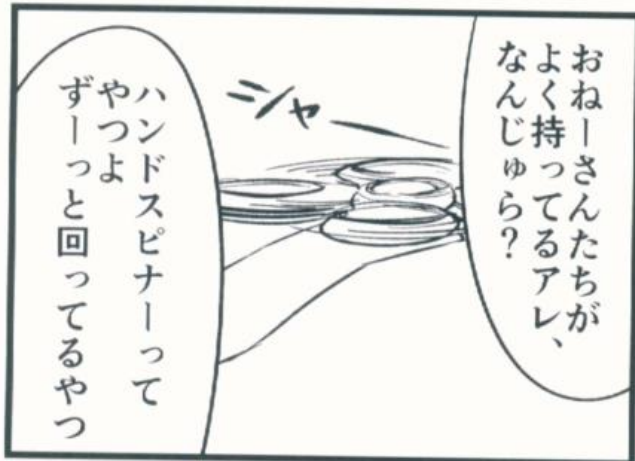 おねーさんたちが
よく持ってるアレ、
なんじゅら？
シャー
ハンドスピナーって
やつよ
ずーっと回ってるやつ